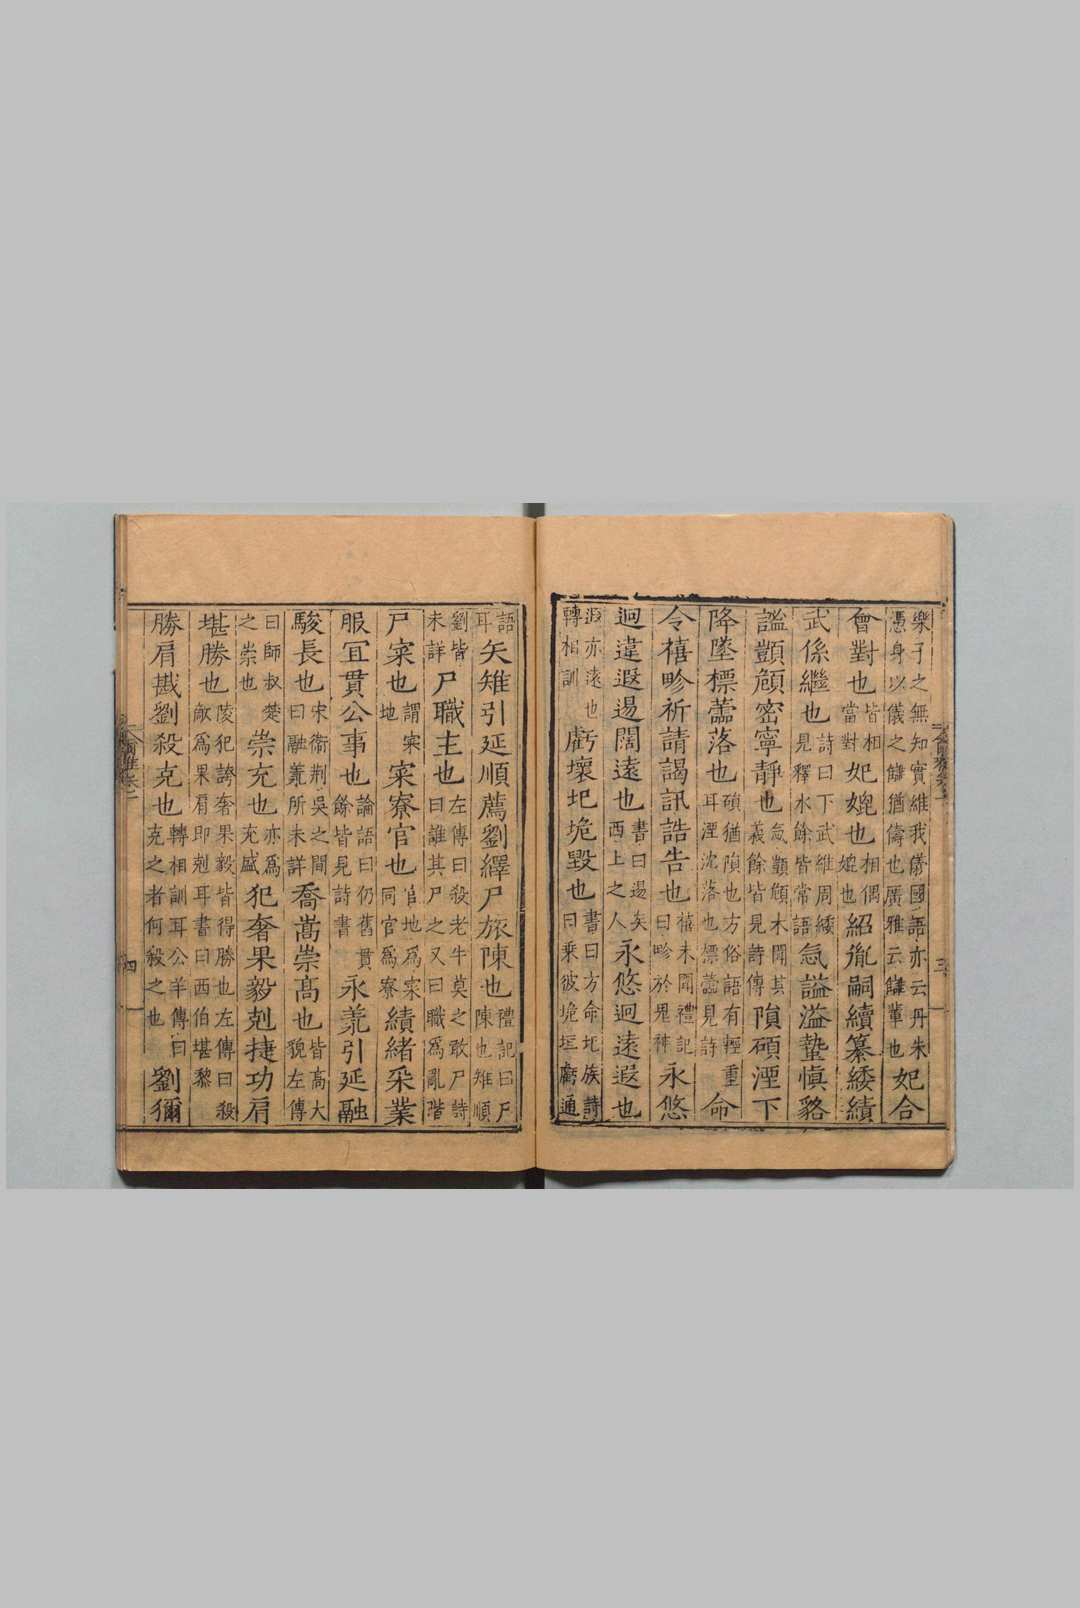 樂子之無知實維我儀國語亦云丹朱憑身以儀之讎猶儔也廣雅云讎輩也妃合
會對也皆相當對妃媲也相偶媲也紹胤嗣續纂緌績
武係繼也詩曰下武維周緌見釋水餘皆常語氣謐溢蟄慎貉
謐顗頠密寧靜也氣顗頠未聞其義餘皆見詩傳隕磒湮下
降墜摽蘦落也磒猶隕也方俗語有輕重耳湮沈落也摽蘦見詩命
令禧畛祈請謁訊誥告也禧未聞禮記曰畛於鬼神永悠
迥違遐逷闊遠也書曰逷矣西土之人永悠迥遠遐也
遐亦遠也轉相訓虧壞圮垝毀也書曰方命圮族詩曰乘彼垝垣虧通
三
語耳矢雉引延順薦劉繹尸旅陳也禮記曰尸陳也雉順
劉皆未詳尸職主也左傳曰殺老牛莫之敢尸詩曰誰其尸之又曰職爲亂階
尸寀也謂寀地寀寮官也官地爲寀同官爲寮績緒采業
服宜貫公事也論語曰仍舊貫餘皆見詩書永羕引延融
駿長也宋衛荆吳之間曰融羕所未詳喬嵩崇高也皆高大貌左傳
曰師叔楚之崇也崇充也亦爲充盛犯奢果毅剋捷功肩
堪勝也陵犯誇奢果毅皆得勝也左傳曰殺敵爲果肩即剋耳書曰西伯堪黎
勝肩戡劉殺克也轉相訓耳公羊傳曰克之者何殺之也劉獮
四